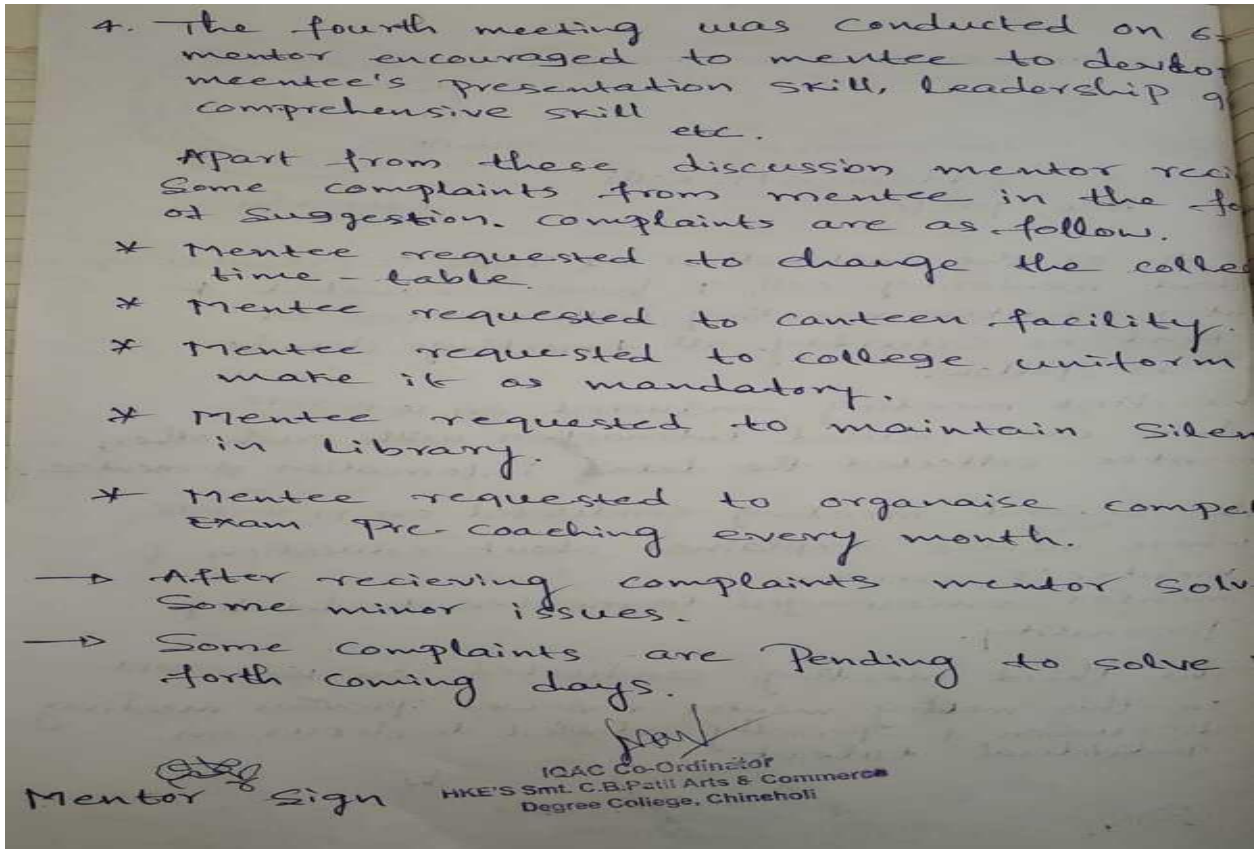 4. The fourth meeting was conducted on 6
mentor encouraged to mentee to
meentee's presentation skill, leadership
comprehensive skill
etc.
Apart from these discussion mentor reci
Some complaints from mentee in the fo
of Suggestion. Complaints are as follow.
* Mentee requested to change the colle
time-table.
* Mentee requested to canteen facility.
* Mentee requested to college uniform
make it as mandatory.
* Mentee requested to maintain Silen
in Library.
* Mentee requested to organaise compe
Exam Pre-coaching every month.
→ After recieving complaints mentor solv
Some minor issues.
→ Some complaints are Pending to solve
forth coming days.
IQAC Co-Ordinator
HKE'S Smt. C.B.Patil Arts & Commerce
Degree College, Chincholi
Mentor Sign